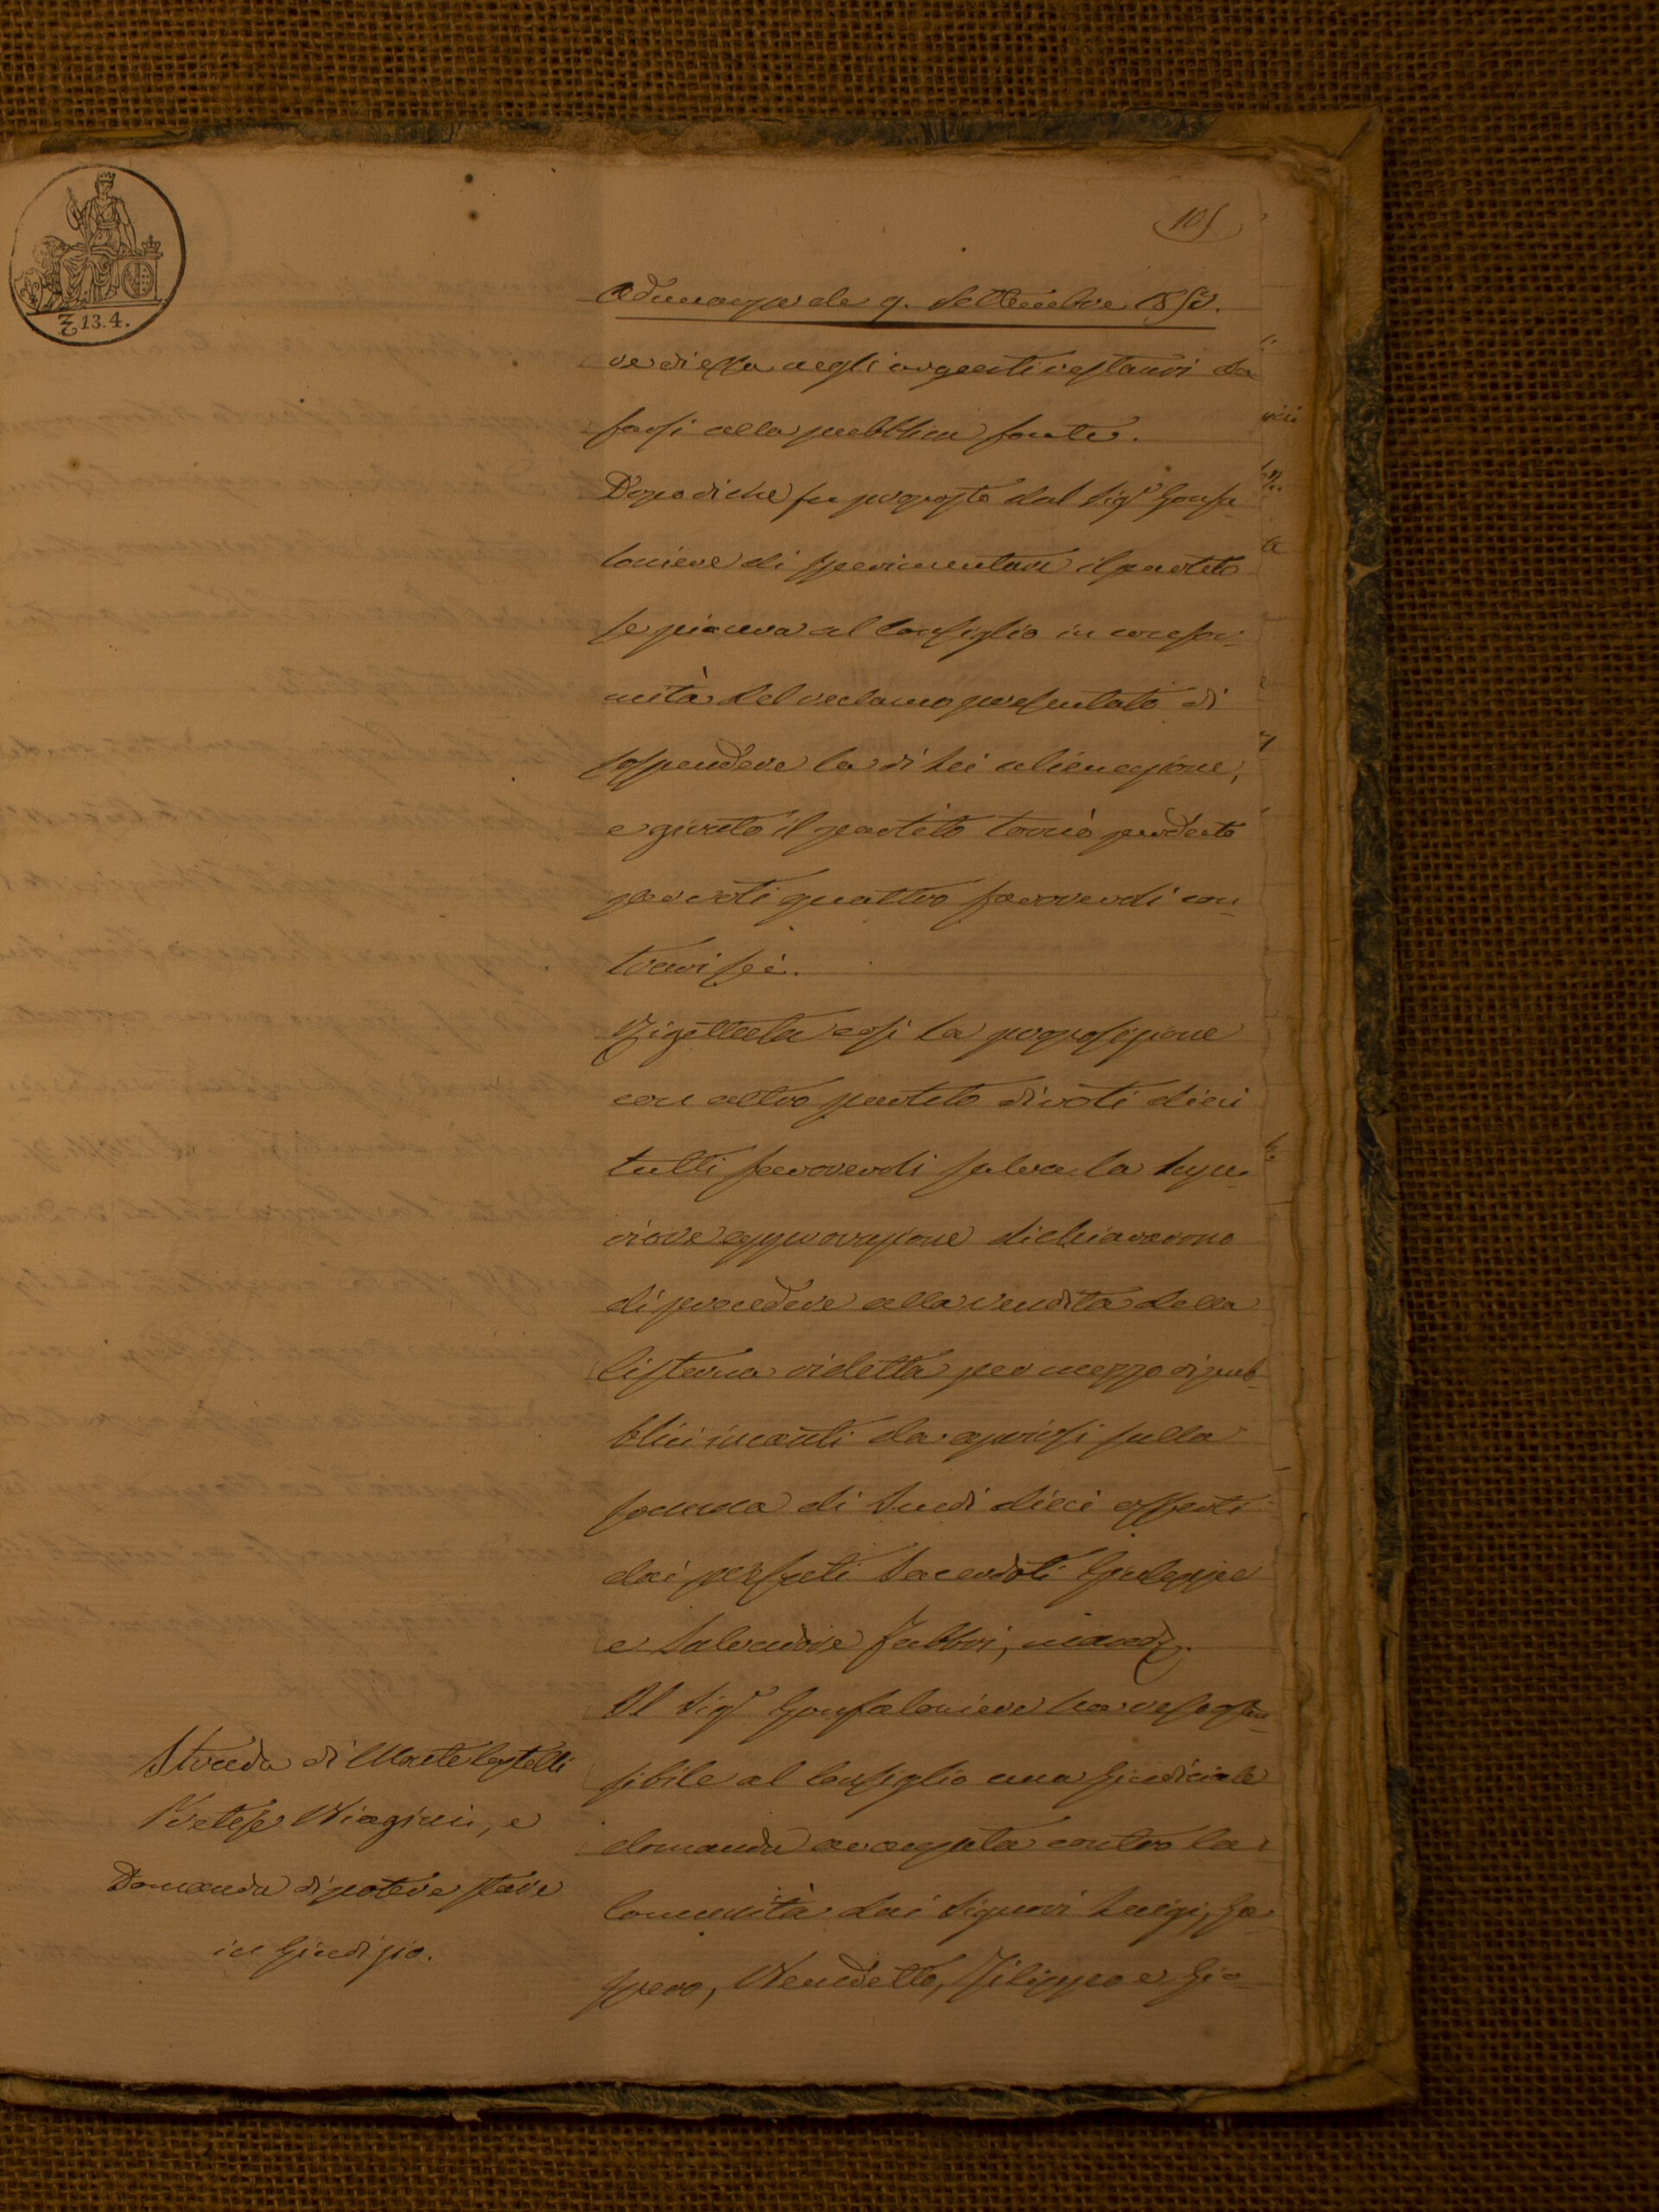 105
Adunanza de 9. Settembre 185
re di essa negli urgenti restauri da
farsi alla pubblica fonte.
Dopodiché fu proposto dal Sig.r Gonfa-
loniere di sperimentare il partito
se piaceva al Consiglio in confor-
mità del reclamo presentato di
sospendere la di lei alienazione,
e girato il partito tornò perduto
per voti quattro favorevoli con-
trari sei.
Rigettata così la proposizione
con altro partito di voti dieci
tutti favorevoli salva la Supe-
riore approvazione dichiararono
di procedere alla vendita della
Cisterna ridetta per mezzo di pub-
blici incanti da aprirsi sulla
somma di Scudi dieci offerti
dai prefati Sacerdoti Giuseppe
e Salvadore Fabbri, mand.
Il Sig.r Gonfaloniere ha reso osten-
sibile al Consiglio una giudiciale
domanda avanzata contro la
Comunità dai Signori Luigi, Ga-
spero, Benedetto, Filippo e Gio-
Strada di Monte Castelli
Pretese Biagini, e
Domanda di potere stare
in Giudizio.
13.4.